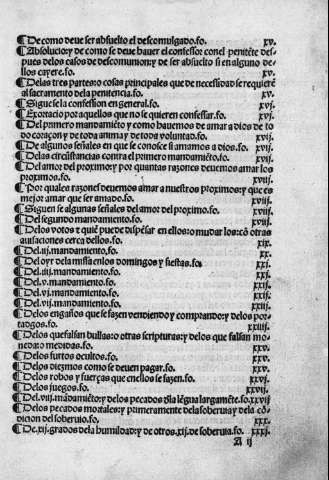 ¶De como deve ser absuelto el descomulgado.fo. xv.
¶Absolucion:y de como se deve haver el confessor con el penitẽte des-
pues delos casos de descomunion:y de ser absuelto si en alguno de-
llos cayere.fo. xv.
¶Delas tres partes:o cosas principales que de necessidad se requierẽ
al sacramento dela penitencia.fo. xv.
¶Siguese la confession en general.fo. xvj.
¶Exortacio por aquellos que no se quieren confessar.fo. xvj.
¶Del primero mandamiẽto y como havemos de amar a dios de to
do coraçon y de toda anima y de toda voluntad.fo. xvj.
¶De algunos señales en que se conosce si amamos a dios.fo. xvij.
¶Delas circũstancias contra el primero mandamiẽto.fo. xvij.
¶Del amor del proximo:y por quantas razones devemos amar los
proximos.fo. xvij.
¶Por quales razones devemos amar a nuestros proximos:y que es
mejor amar que ser amado.fo. xviij.
¶Siguen se algunas señales del amor del proximo.fo. xviij.
¶Del segundo mandamiento.fo. xviij.
¶Delos votos & quiẽ puede dispẽsar en ellos:o mudar los:cõ otras
avisaciones cerca dellos.fo. xix.
¶Del.iij.mandamiento.fo. xx.
¶Del oyr dela missa enlos domingos y fiestas.fo. xxj.
¶Del.iiij.mandamiento.fo. xxj.
¶Del.v.mandamiento.fo. xxij.
¶Del.vj.mandamiento.fo. xxij.
¶Del.vij.mandamiento.fo. xxij.
¶Delos engaños que se fazen vendiendo y comprando:y delos por-
tadgos.fo. xxiiij.
¶Delos que falsan bullas:o otras scripturas:y delos que falsan mo
neda:o medidas.fo. xxv.
¶Delos furtos ocultos.fo. xxv.
¶Delos diezmos como se deven pagar.fo. xxv.
¶Delos robos y fuerças que enellos se fazen.fo. xxvj.
¶Delos juegos.fo. xxvij.
¶Del.viij.mãdamiẽto:y delos pecados dla lẽgua largamẽte.fo.xxvij
¶Delos pecados mortales:y primeramente dela sobervia y dela cõ-
dicion del sobervio.fo. xxx.
¶De.xij.grados dela humildad:y de otros.xij.de sobervia.fo. xxxj.
A ij